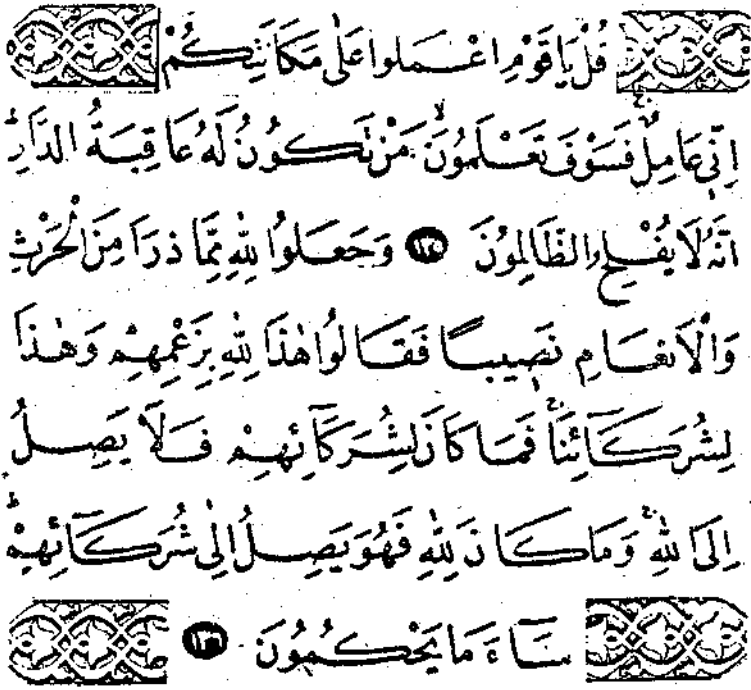 قُلْ يَا قَوْمِ اعْمَلُوا عَلٰى مَكَانَتِكُمْ
اِنّ۪ي عَامِلٌۚ فَسَوْفَ تَعْلَمُونَۙ مَنْ تَكُونُ لَهُ عَاقِبَةُ الدَّارِۜ
اِنَّهُ لَا يُفْلِحُ الظَّالِمُونَ ﴿١٣٥﴾ وَجَعَلُوا لِلّٰهِ مِمَّا ذَرَاَ مِنَ الْحَرْثِ
وَالْاَنْعَامِ نَص۪يبًا فَقَالُوا هٰذَا لِلّٰهِ بِزَعْمِهِمْ وَهٰذَا
لِشُرَكَٓائِنَاۚ فَمَا كَانَ لِشُرَكَٓائِهِمْ فَلَا يَصِلُ
اِلَى اللّٰهِۚ وَمَا كَانَ لِلّٰهِ فَهُوَ يَصِلُ اِلٰى شُرَكَٓائِهِمْۜ
سَٓاءَ مَا يَحْكُمُونَ ﴿١٣٦﴾